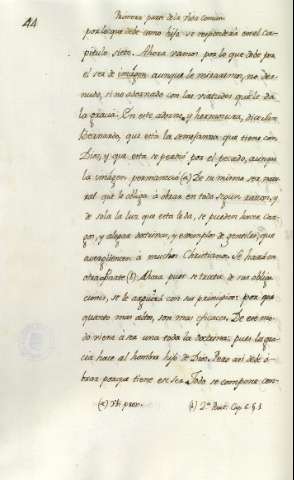 44
Primera parte de la Vida Comun
por lo que debe como hijo se respondera en el ca-
pitulo siete. Ahora vamos por lo que debe por
el ser de imagen aunque le miraramos, no des-
nudo, si no adornado con las virtudes que le da
la gracia. En este adorno, y hermosura, dice San
Bernardo, que está la semejanza que tiene con
Dios, y que esta se perdió por el pecado, aunque
la imagen permaneció (a) De su misma ser natu-
ral que le obliga á obrar en todo segun razon, y
de sola la luz que esta le da, se pueden hacer car-
gos, y alegar doctrinas, y exemplos de gentiles que
averguencen á muchos Christianos. Se hará en
otra parte (b). Ahora pues se trata de sus obliga-
ciones, se le arguirá con sus principios: por que
quanto mas altos, son mas eficaces. De este mo-
do viene á ser una toda la doctrina: pues la gra-
cia hace al hombre hijo de Dios. Pero asi debe ó-
brar porque tiene en ser. Todo se compone con-
(a) Ub. prox. (b) 2.a Part. Cap. 6. § 1